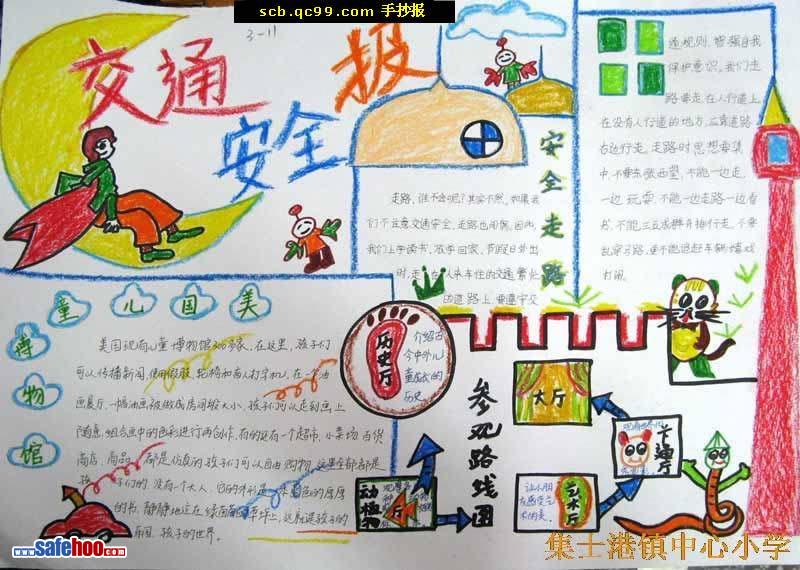 scb.qc99.com 手抄报
3-11
交通
安全
报
安全走路
走路,谁不会呢?其实不然,如果我
们不注意交通安全,走路也闯祸,因为
我们上学读书、放学回家、节假日外出
时,走在人来车往的交通繁忙
的道路上,要遵守交
通规则,增强自我
保护意识。我们走
路要走在人行道上,
在没有人行道的地方,应靠道路
右边行走。走路时思想要集
中不要东张西望,不能一边走
一边玩耍,不能一边走路一边看
书,不能三五成群并排行走,不要
乱穿马路,更不能追赶车辆嬉戏
打闹。
美国儿童
博物馆
美国现有儿童博物馆300多家,在这里,孩子们
可以传播新闻,使用假肢、轮椅和盲人打字机。在一个油
画展厅,一幅油画被做成房间般大小,孩子们可以走到画上
随意组合画中的色彩进行再创作。有的是有一个超市,小菜场、百货
商店,商品都是仿真的,孩子们可以自由购物,这里全部都是
孩子们的,没有一个大人。
的书,静静地立在绿茵茵的草坪上,这就是孩子的
王国,孩子的世界。
历史厅
介绍古
今中外儿
童成长的
历史
参观路线图
大厅
下蹲厅
动植物
艺术厅
让小朋
友感受艺
术的美。
www.safehoo.com
集士港镇中心小学